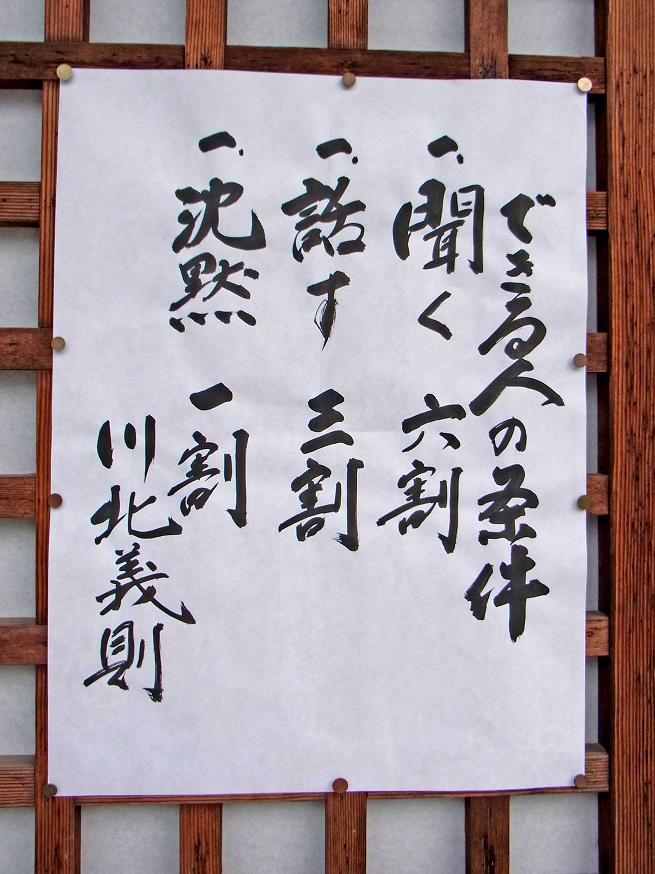 できる人の条件
一、聞く 六割
一、話す 三割
一、沈黙 一割
川北義則